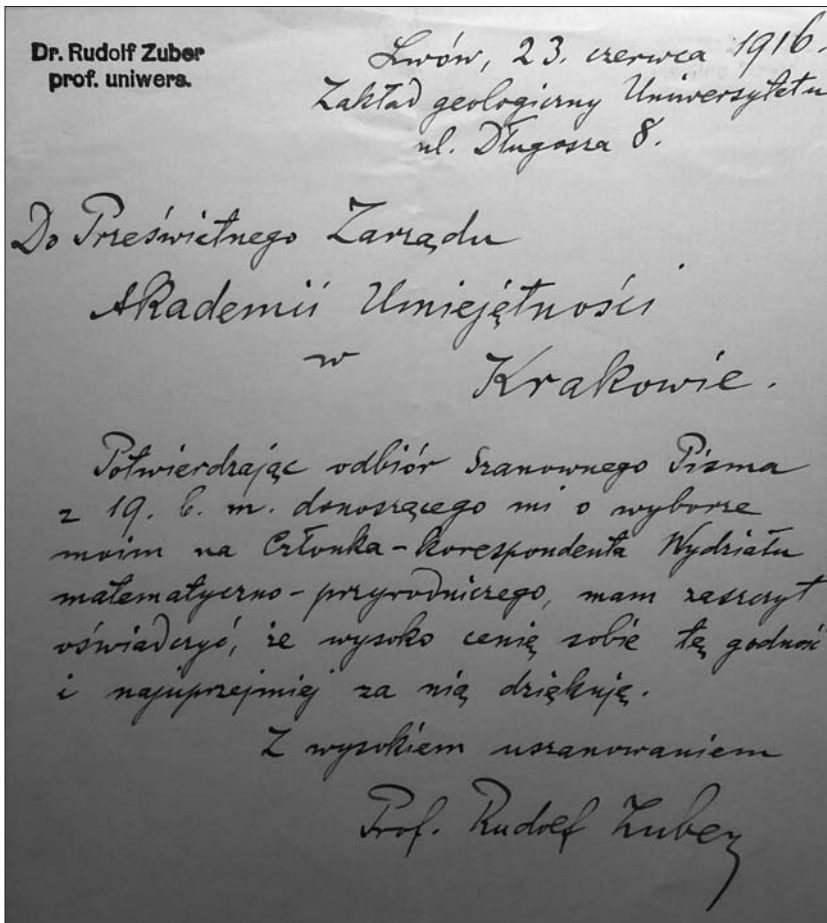 Dr. Rudolf Zuber
prof. uniwers.
Lwów, 23. czerwca 1916.
Zakład geologiczny Uniwersytetu
ul. Długosza 8.
Do Prześwietnego Zarządu
Akademii Umiejętności
w
Krakowie.
Potwierdzając odbiór Szanownego Pisma
z 19. b. m. donoszącego mi o wyborze
moim na Członka-korespondenta Wydziału
matematyczno-przyrodniczego, mam zaszczyt
oświadczyć, że wysoko cenię sobie tę godność
i najuprzejmiej za nią dziękuję.
Z wysokiem uszanowaniem
Prof. Rudolf Zuber